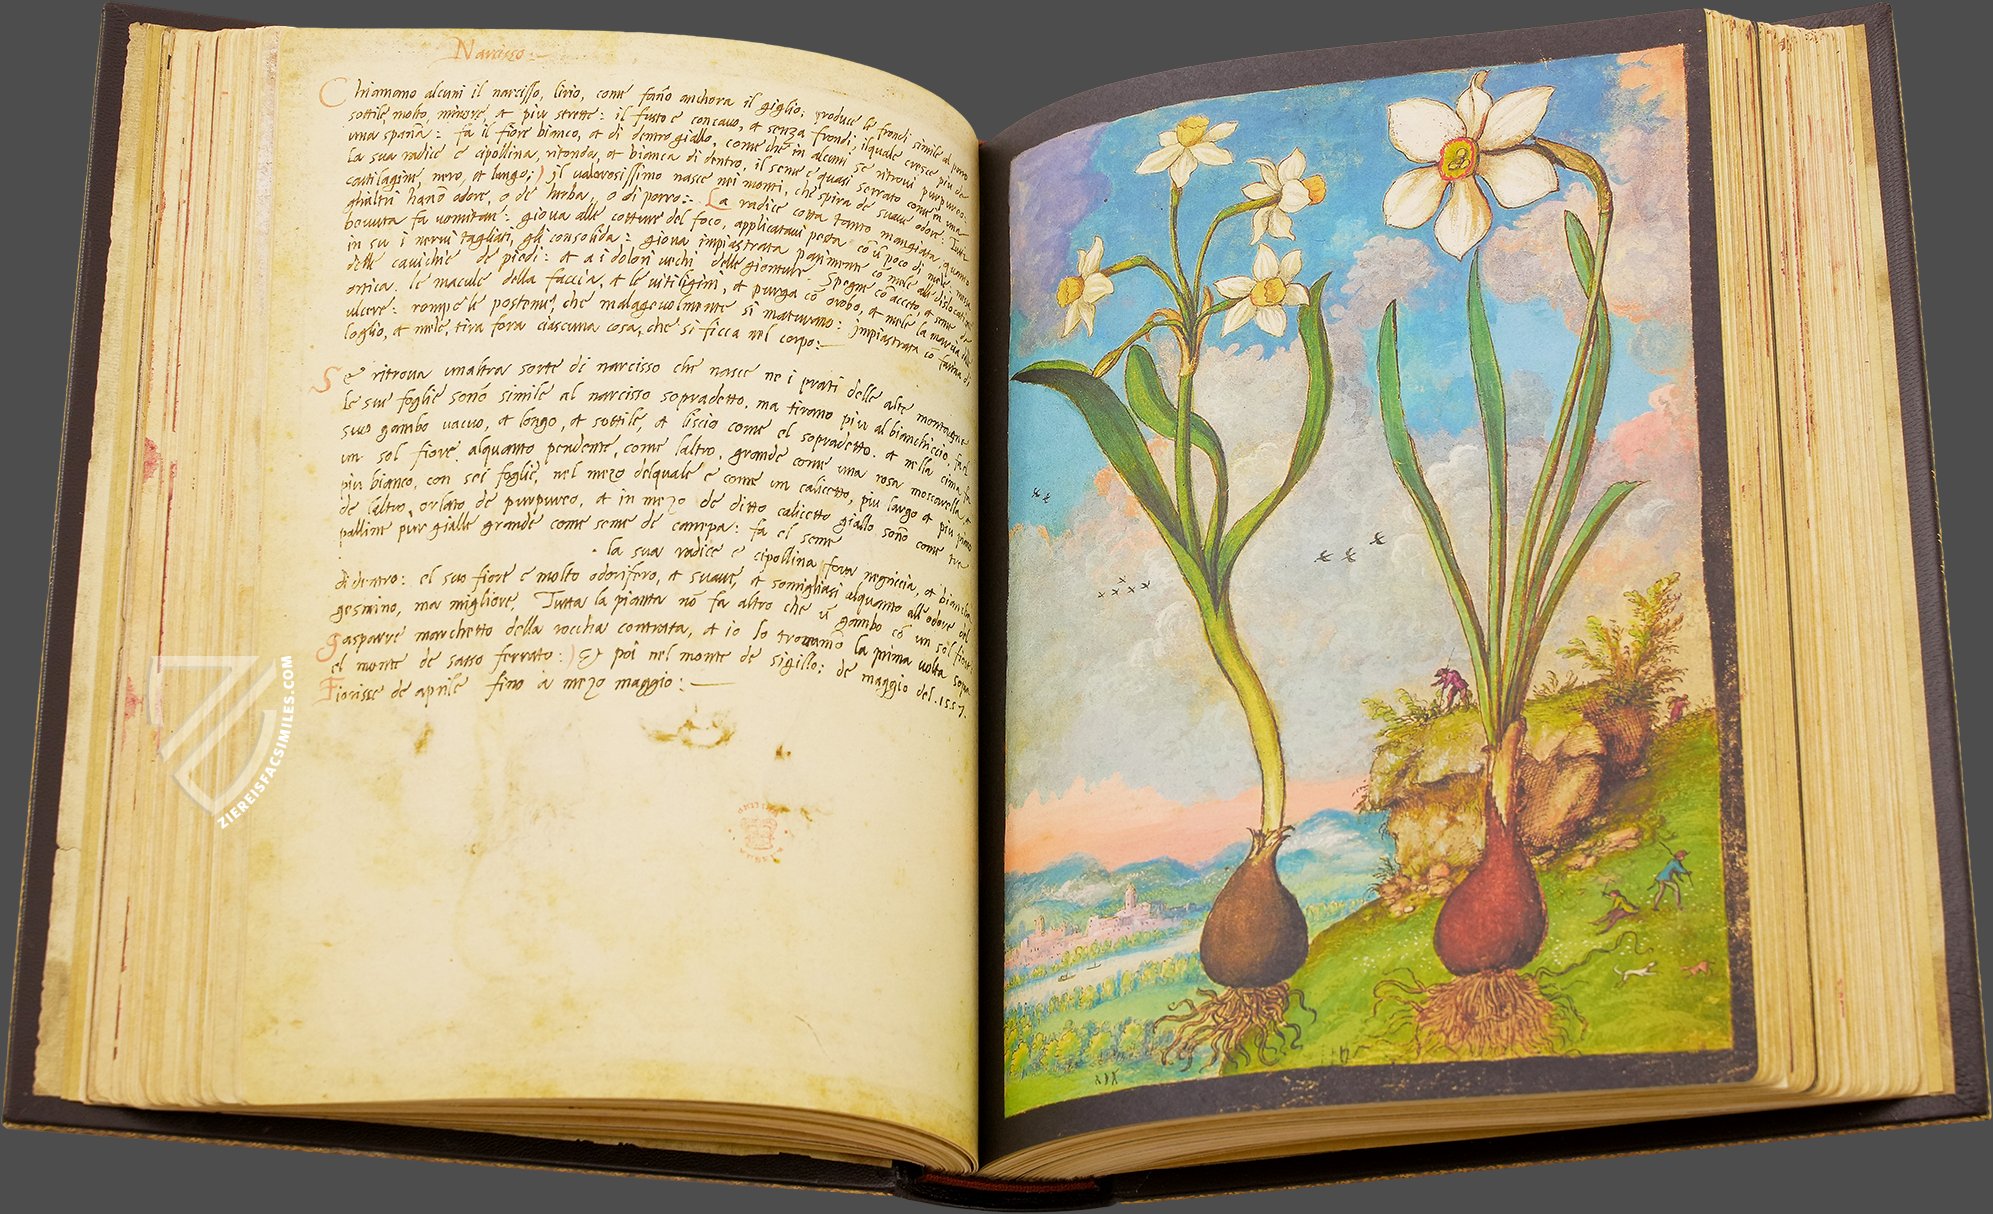 Narcisso
Chiamano alcuni il narcisso, lirio, come fano anchora il giglio, produce le frondi simile al porro
sottile molto, minore, et piu strette: il fusto è concavo, et senza frondi, ilquale cresce piu che
una spana: fa il fiore bianco, et di dentro giallo, come che in alcuni se ritrovi purpureo.
La sua radice è cipollina, ritonda, et bianca di dentro, il seme è quasi serrato come in una
cartilagine, nero, et longo; il valorosissimo nasce nei monti, che spira de suave odore: Tutti
ghialtri hano odore, o de herba, o di porro: La radice cotta tanto mangiata, quanto
bevuta fa vomitare: giova alle cotture del foco, applicatavi pesta co u poco di mele, messa
in su i nervi tagliati, gli consolida: giova impiastrata parimente co mele alle dislocationi
delle cavichie de piedi: et a i dolori vechi delle gionture Spegne co aceto, et seme de
ortica. le macule della faccia, et le vitiligini, et purga co orobo, et mele la marcia delle
ulcere: rompe le posteme, che malagevolmente si maturano: impiastrata co farina di
loglio, et mele, tira fora ciascuna cosa, che si ficca nel corpo:
Se ritrova unaltra sorte di narcisso che nasce ne i prati delle alte montagne
le sue foglie sono simile al narcisso sopradetto, ma tirono piu al bianchiccio, fa el
suo gambo vacuo, et longo, et sottile, et liscio come el sopradetto. et nella cima fa
un sol fiore alquanto pendente, come laltro, grande come una rosa moscarella, et
piu bianco, con sei foglie, nel mezo delquale è come un calicetto, piu largo et piu piano
de laltro, orlato de purpureo, et in mezo de ditto calicetto giallo sono come tre
palline pur gialle grande come seme de canepa: fa el seme
la sua radice è cipollina fora negriccia, et bianca
di dentro: el suo fiore è molto odorifero, et suave, et somigliasi alquanto alle odore del
gesmino, ma migliore. Tutta la pianta no fa altro che u gambo co un sol fiore.
Gasparre marchetto della roccha contrata, et io lo trovamo la prima volta sopra
el monte de sasso ferrato: Et poi nel monte de sigillo: de maggio del .1557.
Fiorisse de aprile fino a mezo maggio:
ZIEREISFACSIMILES.COM